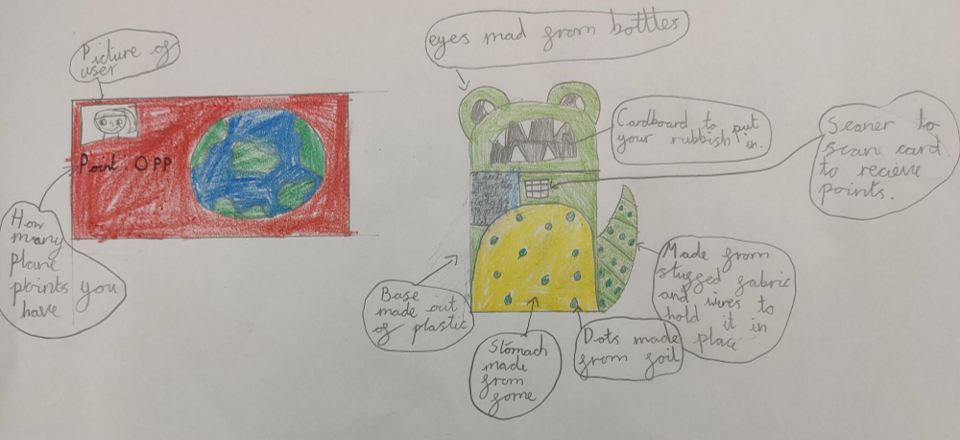 Picture of
user
Point OPP
How
many
plane
points you
have
eyes mad from bottles
Cardboard to put
your rubbish in.
Scaner to
scan card
to recieve
points.
Base
made out
of plastic
Stomach
made
from
fome
Dots made
from foil
Made from
stugged fabric
and wires to
hold it in
place